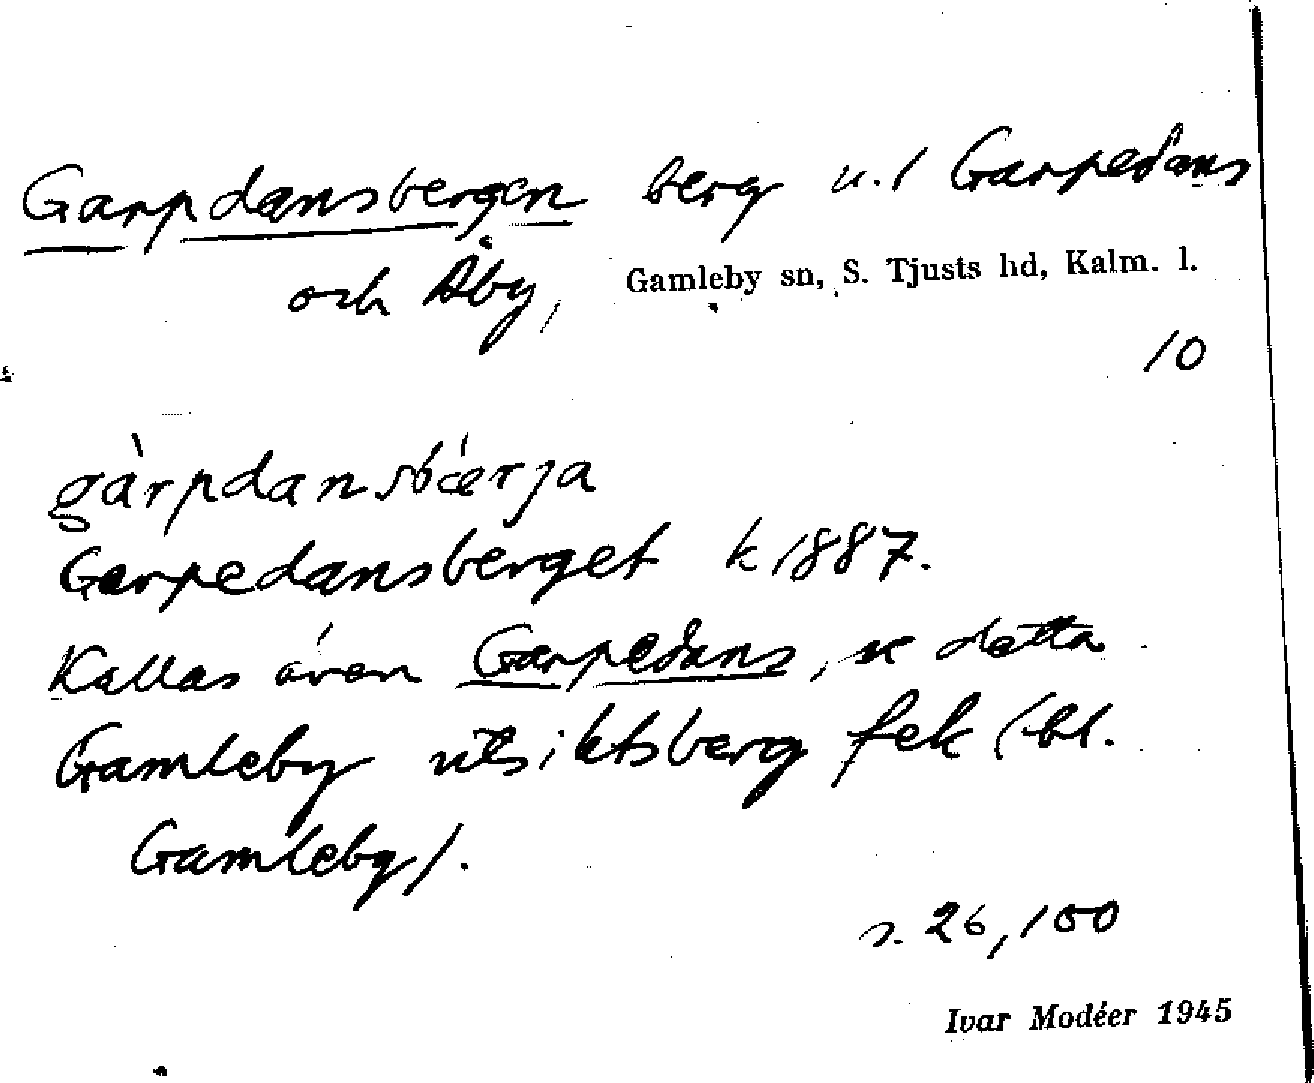 Garpdansbergen berg u. / Garpedans
och Åby, Gamleby sn, S. Tjusts hd, Kalm. l.
10
gàrpdansbǽrja
Garpedansberget k 1887.
Kallas även Garpedans, se detta
Gamleby utsiktsberg fek (bl.
Gamleby).
s. 26, 100
Ivar Modéer 1945